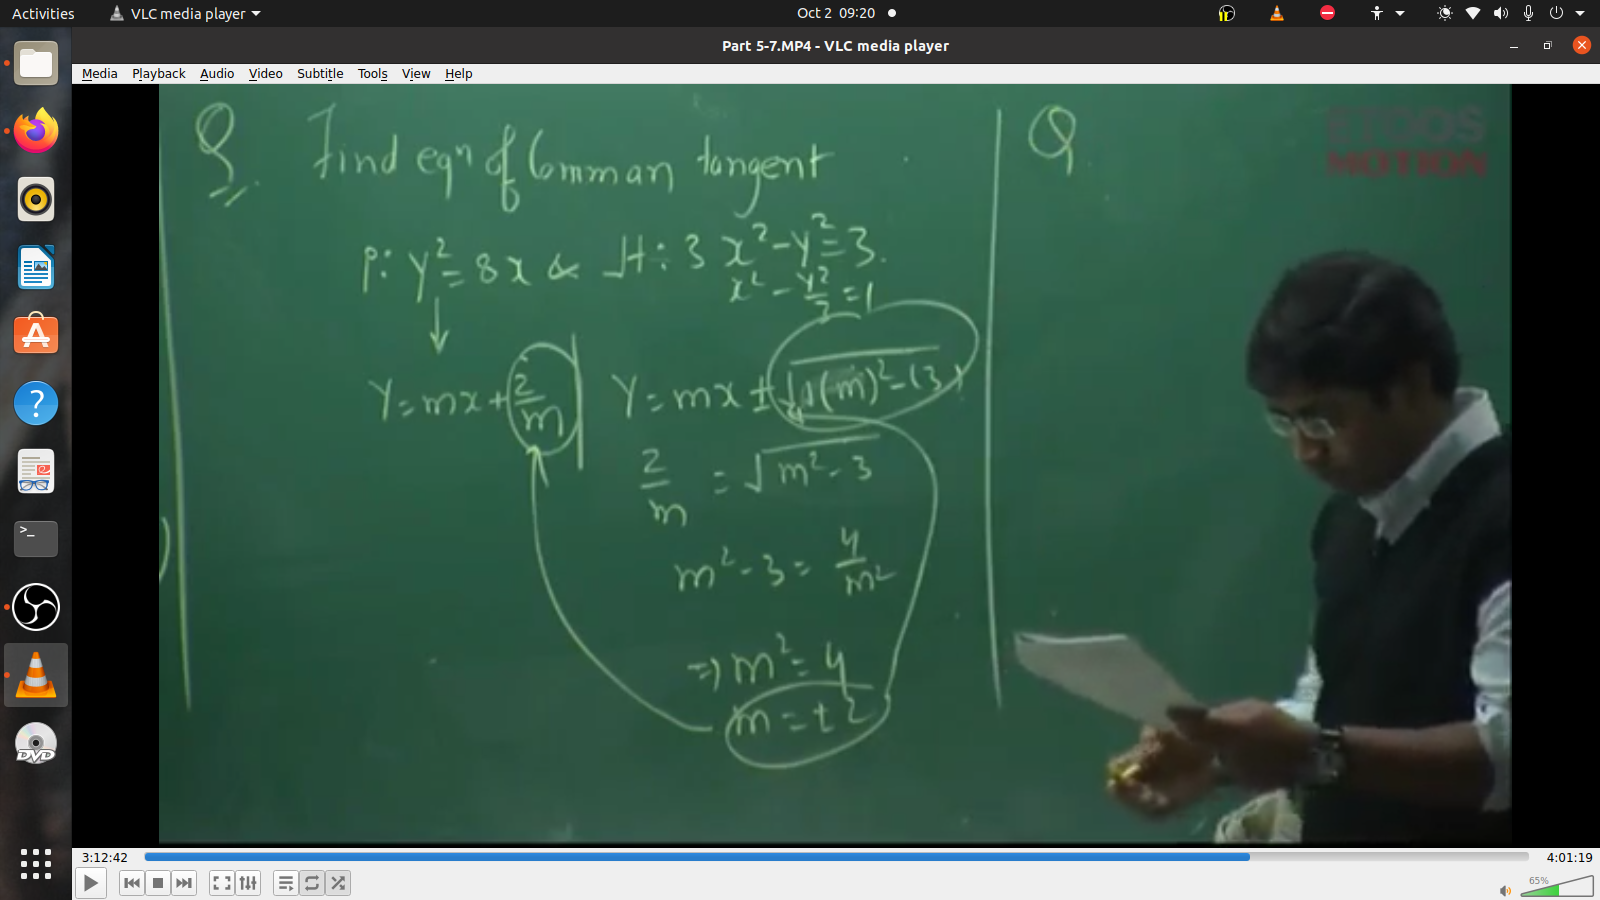 Activities VLC media player Oct 2 09:20
Part 5-7.MP4 - VLC media player
Media Playback Audio Video Subtitle Tools View Help
Q. Find eqⁿ of Comman tangent
P: y² = 8x & H: 3x² - y² = 3.
x² - y²/3 = 1
y = mx + 2/m
y = mx ± √1(m)² - (3)
2/m = √m² - 3
m² - 3 = 4/m²
⇒ m² = 4
m = ± 2
Q.
ETOOS
MOTION
>_
?
DVD
3:12:42 4:01:19
65%